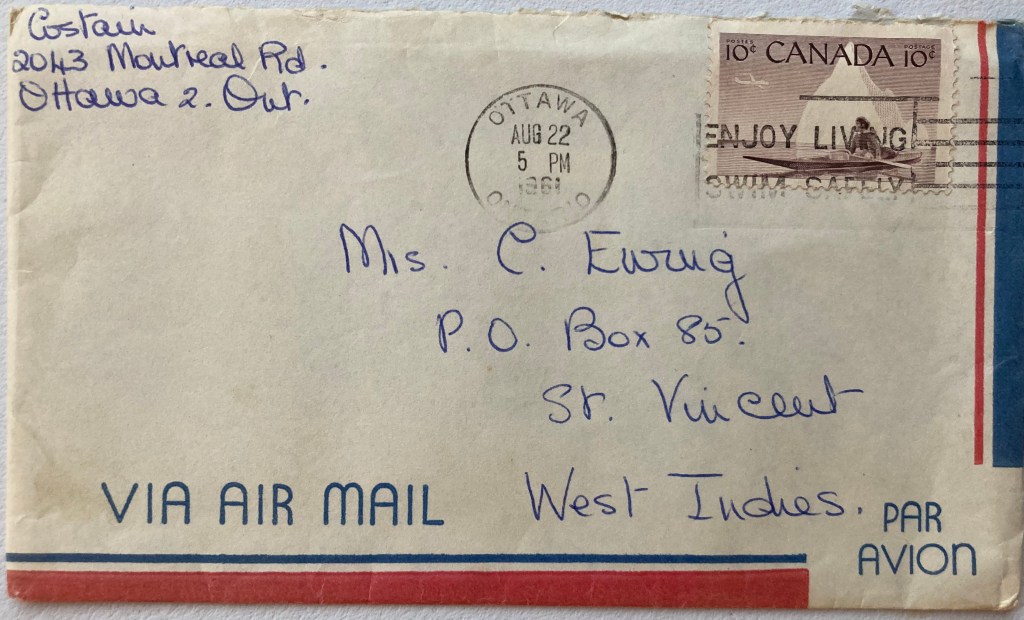 Costain
2043 Montreal Rd.
Ottawa 2. Ont.
POSTES POSTAGE
10¢ CANADA 10¢
OTTAWA
AUG 22
5 PM
1961
ONTARIO
ENJOY LIVING
SWIM SAFELY
Mrs. C. Ewing
P.O. Box 85.
St. Vincent
West Indies.
VIA AIR MAIL
PAR
AVION